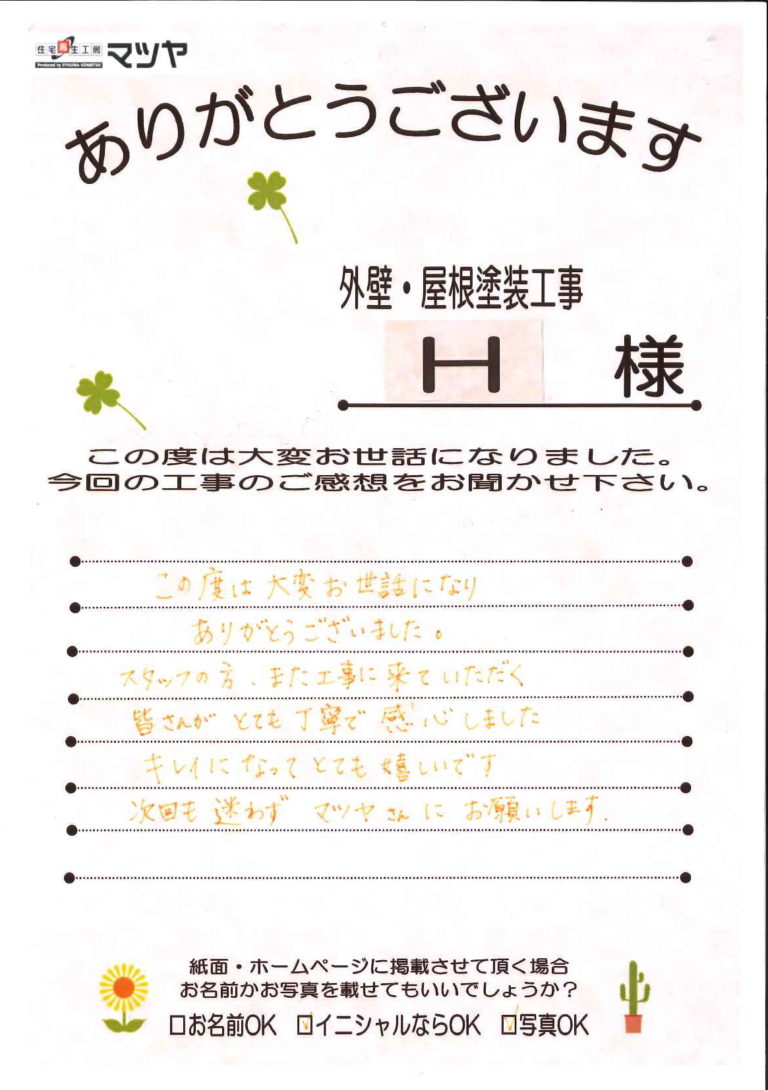 住宅再生工房 マツヤ
ありがとうございます
外壁・屋根塗装工事
H 様
この度は大変お世話になりました。
今回の工事のご感想をお聞かせ下さい。
この度は大変お世話になり
ありがとうございました。
スタッフの方、また工事に来ていただく
皆さんが とても丁寧で 感心しました
キレイになって とても嬉しいです
次回も迷わず マツヤさんに お願いします.
紙面・ホームページに掲載させて頂く場合
お名前かお写真を載せてもいいでしょうか?
□お名前OK ☑イニシャルならOK ☑写真OK